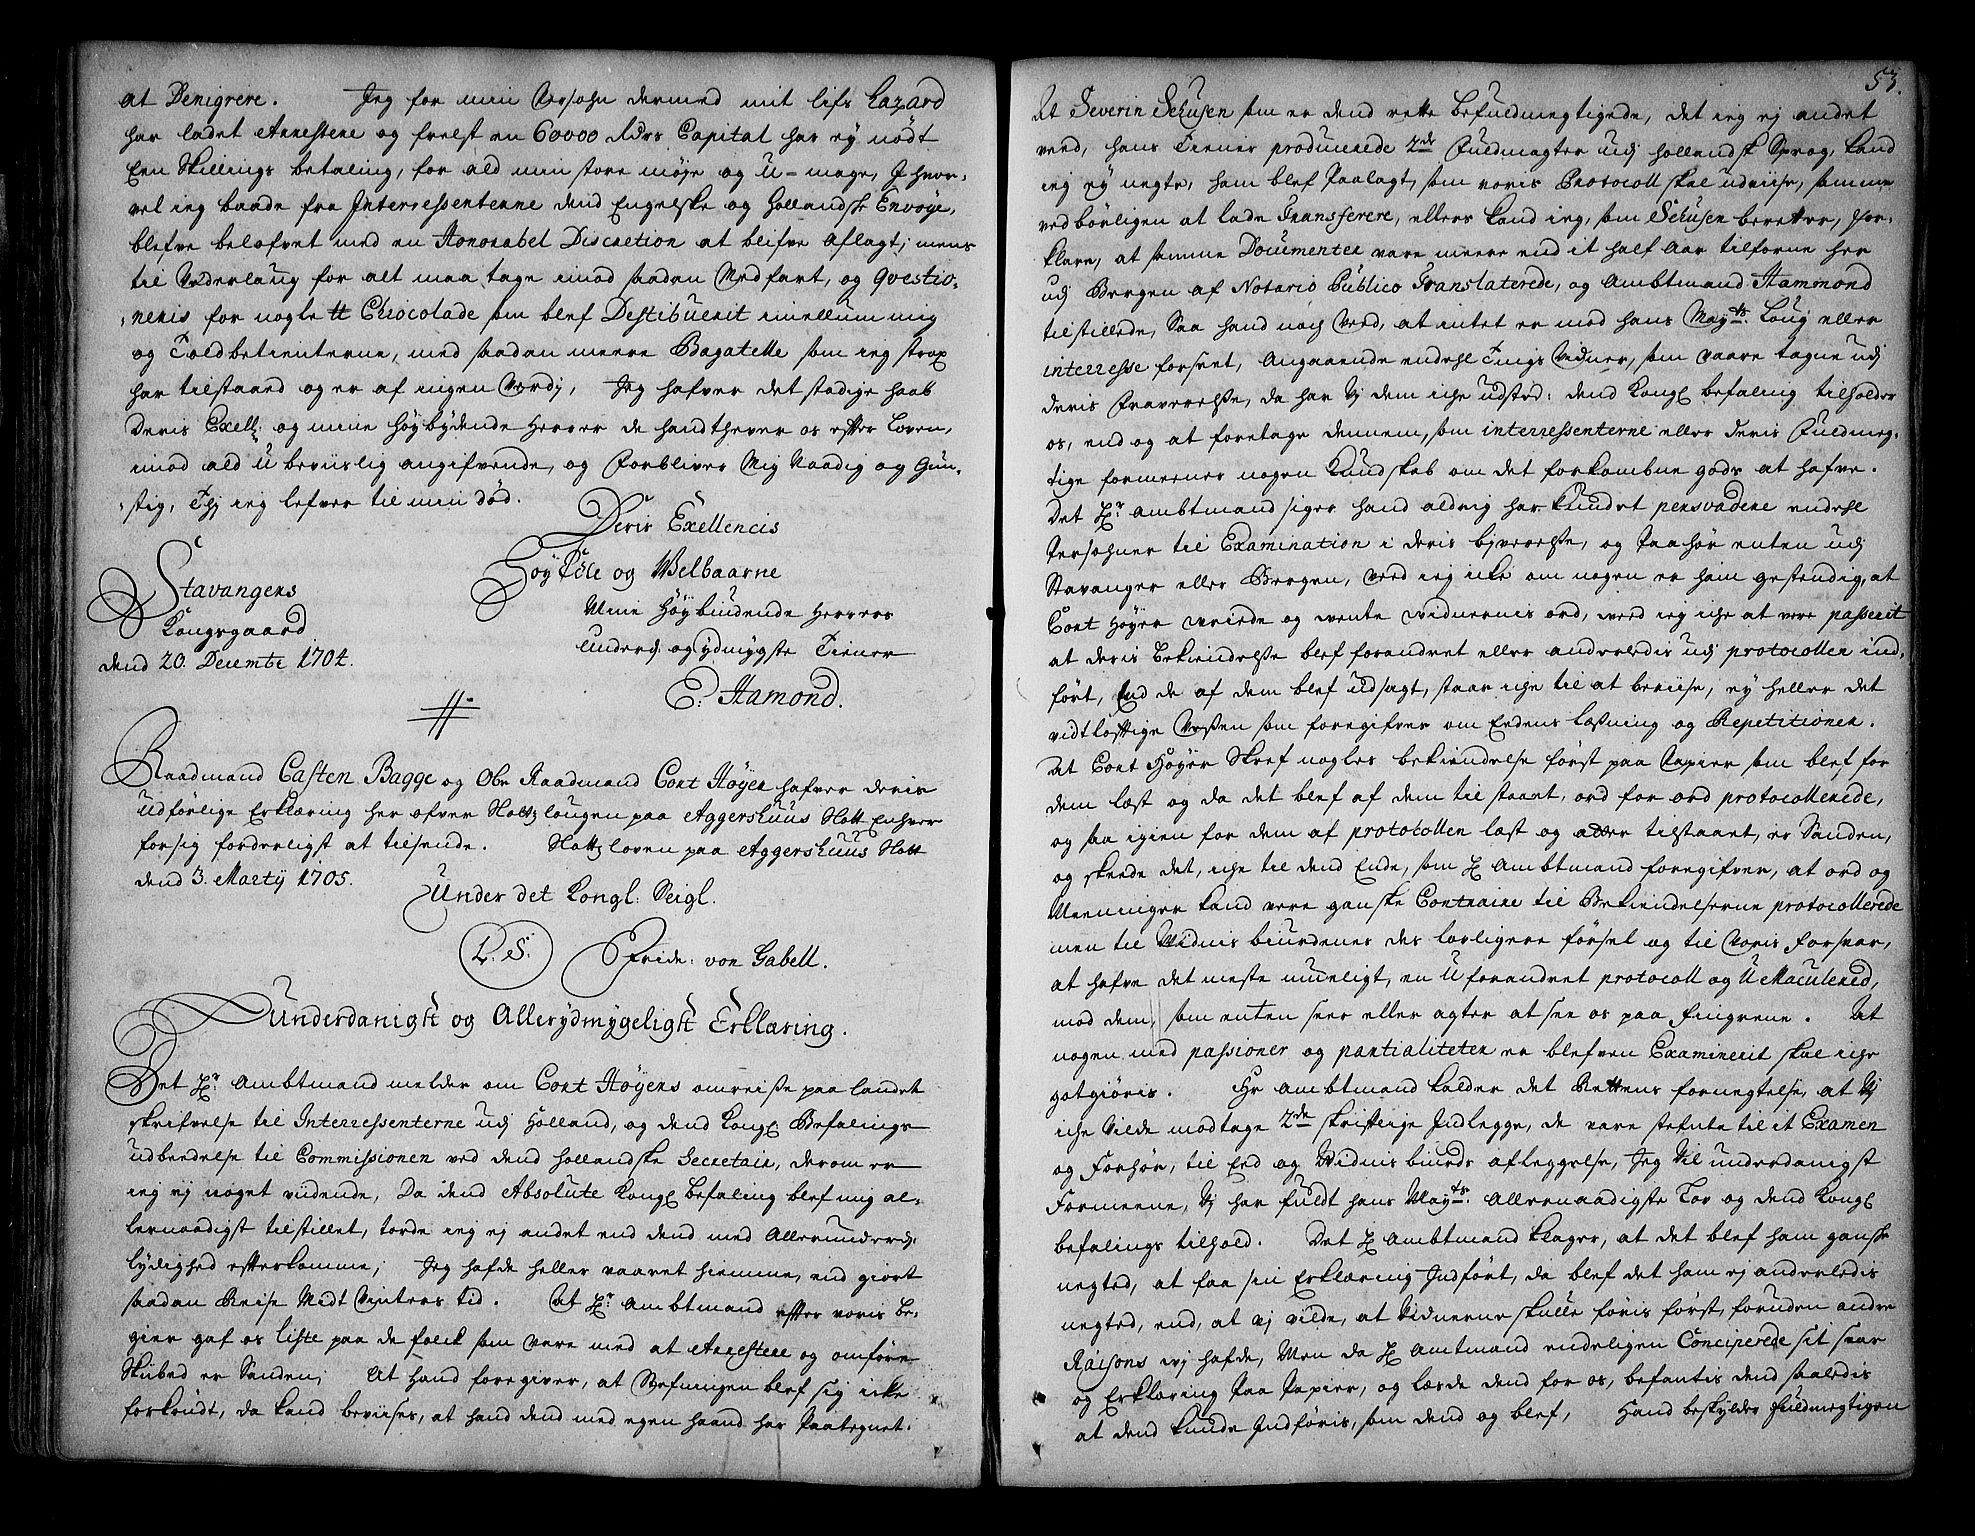 at Denigrere. Jeg for min Persohn dermed mit lifs Hazard
har ladet Arrestere og frelst en 60000 Rdrs Capital har ej nødt
Een Skillings betaling, for ald min store møje og U-mage, I hvor-
vel ieg baade fra Interressenterne dend Engelske og Hollandske Envoye,
blefve belofvet med en Honorabel Discretion at blifve aflagt; mens
til Vederlaug for alt maa tage imod saadan Medfart, og Qvestio-
neris for nogle tt Chiocolade som blef Destibuerit imellum mig
og Toldbetienterne, med saadan meere Bagatelle som ieg strax
har tilstaaed og er af ingen Verdj, Jeg hafver det stadige haab
Deris Exell: og mine Høybydende Herrer de handthever os efter Loven,
imod ald Ubeviislig angifvende, og Forbliver Mig Naadig og Gun-
stig, Thj ieg lefver til min død.
Deris Exellencis
Høy Edle og Welbaarne
Mine Høybiudende Herrers
underd: og ydmygste Tiener
Stavangers
Kongsgaard
dend 20. Decembr 1704.
E. Hamond.
Raadmand Casten Bagge og Obr Raadmand Cort Høyer hafver deris
udførlige Erklæring her ofver Slottzlougen paa Aggershuus Slott Enhver
for sig forderligst at tilsende. Slottzloven paa Aggershuus Slott
dend 3. Martij 1705.
Under det Kongl: Seigl.
L. S. Fride: von Gabell.
Underdanigst og Allerydmygeligst Erklæring.
Det Hr Ambtmand melder om Cort Høyers omreise paa landet
skrifvelse til Interressenterne udj Holland, og dend Kongl Befalings
udbredelse til Commissionen ved dend hollandske Secretair, derom er
ieg ej noget vidende, Da dend Absolute Kongl befaling blef mig al-
lernaadigst tilstillet, torde ieg ej andet end dend med Allerunderd:
lydighed efterkomme; Jeg hafde heller vaaret hiemme, end giort
saadan Reise Midt Vinters tid. At Hr Ambtmand efter voris be-
giær gaf os liste paa de folck som vare med at Arrestere og omføre
Skibed er Sanden; At hand foregiver, at Besningen blef sig icke
forkyndt, da kand beviises, at hand dend med egen haand har Paategnet.
53.
At Severin Sehusen som er dend rette befuldmegtigede, det ieg ej andet
veed, hans Tiener producerede 2de Fuldmagter udj hollandsk Sprog, kand
ieg ej negte, ham blef Paalagt, som voris Protocoll skal udviise, samme
vedbørligen at lade Transferere, ellers kand ieg, som Sehusen beretter, for-
klare, at samme Documenter vare meere end it half Aar tilforne her
udj Bergen af Notario Publico Translaterede, og Ambtmand Hammond
tilstillede, Saa hand noch veed, at intet er mod hans Mayts. Loug eller
interesse forseet, Angaaende endehl Tings Vidner, som vaare tagne udj
deris Fraverelse, da har Vj dem iche udsted: dend Kongl befaling tilholder
os, end og at foretage dennem, som interressenterne eller deris Fuldmeg-
tige formeener nogen Kundskab om det forkombne gods at hafve.
Det Hr Ambtmand siger hand aldrig har kundet persvadere endehl
Persohner til Examination i deris bjverelse, og Paahør enten udj
Stavanger eller Bergen, veed ieg icke om nogen er ham gestendig, at
Cort Høyer vreide og vente vidnernis ord, veed ieg iche at vere passerit
at deris bekiendelse blef forandret eller anderledis udj protocollen ind-
ført, End de af dem blef udsagt, staar iche til at beviise, ej heller det
vidtløftige Vesen som foregifver om Eedens læsning og Repetitioner.
At Cort Høyer Skref nogles bekiendelse først paa Papier som blef for
dem læst og da det blef af dem til staaet, ord for ord protocollerede,
og saa igien for dem af protocollen læst og atter tilstaaet, er Sanden,
og skeede det, iche til dend Ende, som Hr Ambtmand foregifver, at ord og
Meeninger kand vere ganske Contraire til Bekiendelserne protocollerede
men til Vidnis biurdenes des lovligere førsel og til Voris forsvar,
at hafve det meste mueligt, en Uforandret protocoll og UMaculered,
mod dem, som enten seer eller agter at see os paa fingrene. At
nogen med passioner og partialiteter er blefven Examinerit skal iche
gotgiøris. Hr Ambtmand kalder det Rettens fornegtelse, at Vj
iche Vilde modtage 2de skriftlige Indlegge, de vare stefnte til it Examen
og Forhør, til Eed og Vidnis biurds afleggelse, Jeg Vil underdanigst
Formeene, Vj har fuldt hans Mayts. Allernaadigste Lov og dend Kongl
befalings tilhold. Det Hr Ambtmand klager, at det blef ham ganske
negted, at faa sin Erklæring Indført, da blef det ham ej anderledis
negted, end, at vj vilde, at Vidnerne skulle føris først, foruden andre
Raisons vj hafde, Men da Hr Amtmand endeligen Conciperede sit svar
og Erklæring Paa Papier, og læsde dend for os, befantis dend saaledis
at dend kunde Indføris, som dend og blef, Hand beskylder fuldmegtigen